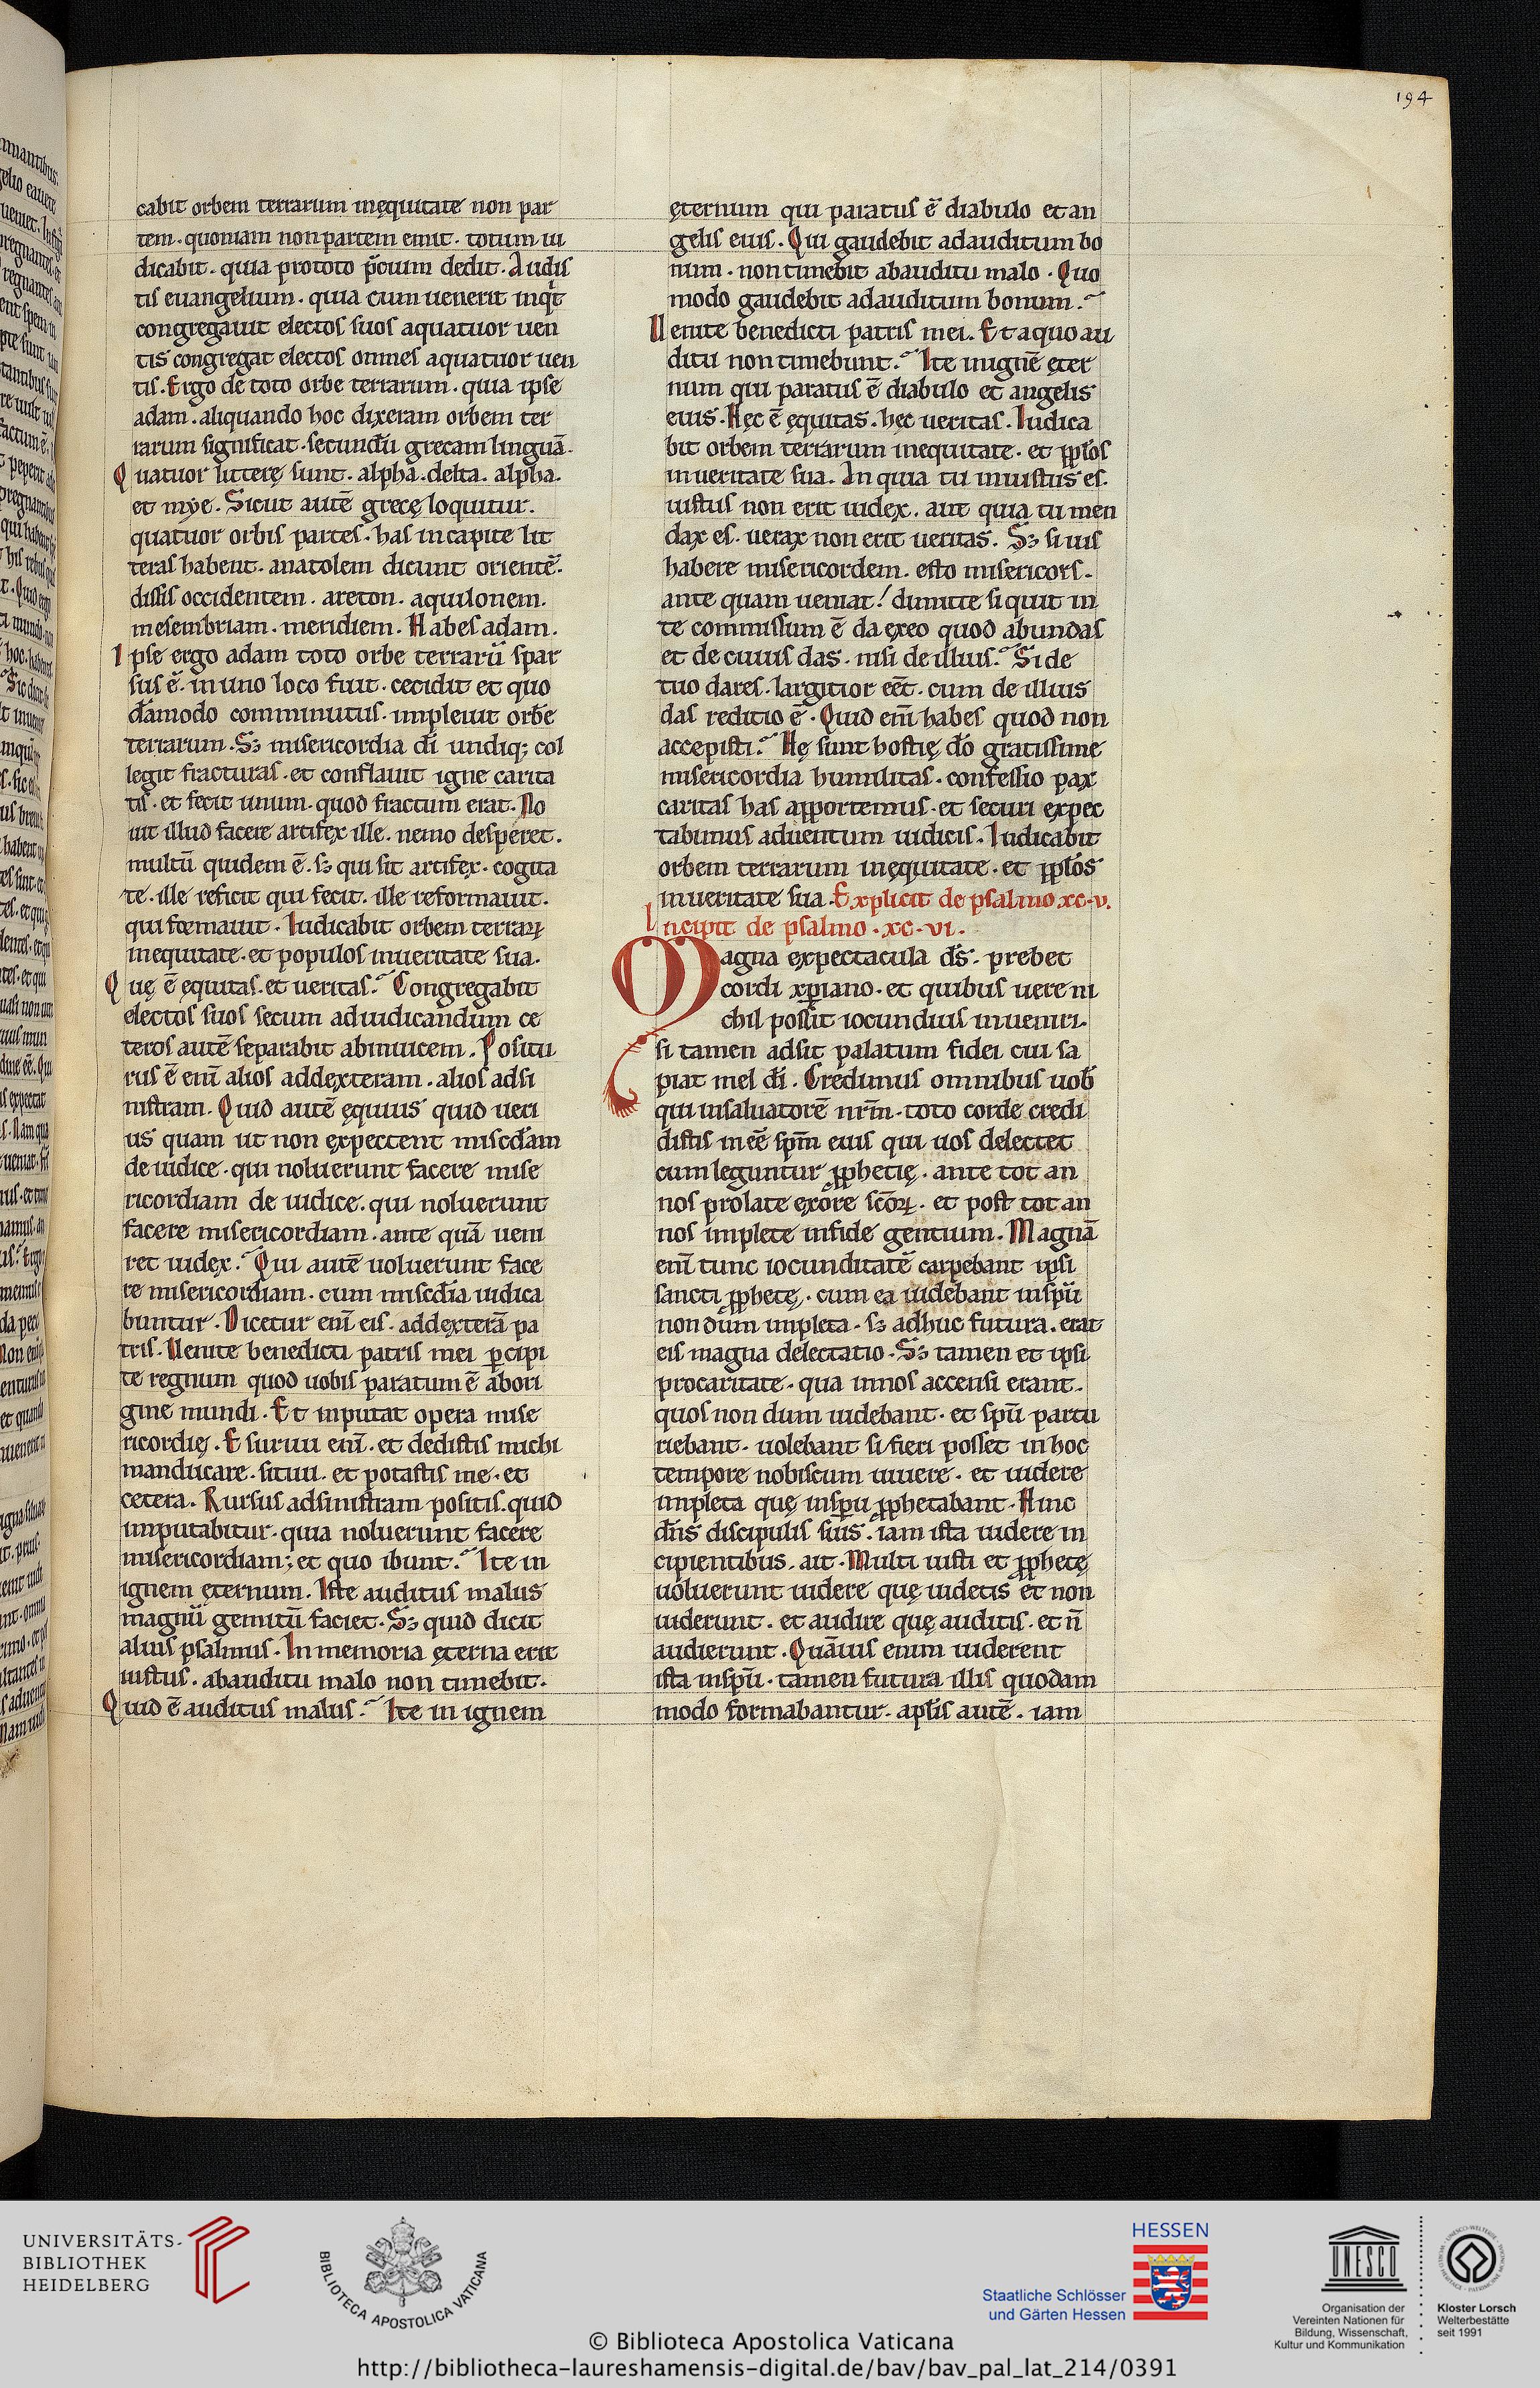 194
cabit orbem terrarum inęquitate non par
tem · quoniam non partem emit · totum iu
dicabit · quia pro toto p̄cium dedit · Audis
tis euangelium · quia cum uenerit inq̇t
congregauit electos suos a quatuor uen
tis congregat electos omnes a quatuor uen
tis · Ergo de toto orbe terrarum · quia ipse
adam · aliquando hoc dixeram orbem ter
rarum significat · secundū grecam linguā ·
Quatuor litterę sunt · alpha · delta · alpha ·
et mye · Sicut autē grecę loquitur ·
quatuor orbis partes · has in capite lit
teras habent · anatolem dicunt orientē ·
dissis occidentem · areton · aquilonem ·
mesembriam · meridiem · Habes adam ·
Ipse ergo adam toto orbe terrarū spar
sus ē · in uno loco fuit · cecidit et quo
dāmodo comminutus · impleuit orbē
terrarum · Sꝫ misericordia dī undiqꝫ col
legit fracturas · et conflauit igne carita
tis · et fecit unum · quod fractum erat · No
uit illud facere artifex ille · nemo desperet ·
multū quidem ē · sꝫ qui sit artifex · cogita
te · ille reficit qui fecit · ille reformauit ·
qui formauit · Iudicabit orbem terrarꝝ
inequitate · et populos in ueritate sua ·
Quę ē ęquitas · et ueritas · Congregabit
electos suos secum ad iudicandum ce
teros autē separabit ab inuicem · Positu
rus ē enī alios ad dexteram · alios ad si
nistram · Quid autē ęquius quid ueri
us quam ut non expectent miscdām
de iudice · qui noluerunt facere mise
ricordiam de iudice · qui noluerunt
facere misericordiam · ante quā ueni
ret iudex · Qui autē uoluerunt face
re misericordiam · cum miscdīa iudica
buntur · Dicetur enī eis · ad dexterā pa
tris · Uenite benedicti patris mei ꝑcipi
te regnum quod uobis paratum ē ab ori
gine mundi · Et inputat opera mise
ricordię · Esuriui enī · et dedistis michi
manducare · sitiui · et potastis me · et
cetera · Rursus ad sinistram positis · quid
imputabitur · quia noluerunt facere
misericordiam ; et quo ibunt · Ite in
ignem ęternum · Iste auditus malus
magnū gemitū faciet · Sꝫ quid dicit
alius psalmus · In memoria ęterna erit
iustus · ab auditu malo non timebit ·
Quid ē auditus malus · Ite in ignem
ęternum qui paratus ē diabulo et an
gelis eius · Qui gaudebit ad auditum bo
num · non timebit ab auditu malo · Quo
modo gaudebit ad auditum bonum ·
Uenite benedicti patris mei · Et a quo au
ditu non timebunt · Ite in ignē ęter
num qui paratus ē diabulo et angelis
eius · Hęc ē ęquitas · hęc ueritas · Iudica
bit orbem terrarum inequitate · et pp̄los
in ueritate sua · An quia tu iniustus es ·
iustus non erit iudex · aut quia tu men
dax es · uerax non erit ueritas · Sꝫ si uis
habere misericordem · esto misericors ·
ante quam ueniat ! dimitte si quit in
te commissum ē da ex eo quod abundas
et de cuius das · nisi de illius · Si de
tuo dares · largitior eēt · cum de illius
das reditio ē · Quid enī habes quod non
accepisti · Hę sunt hostię dō gratissime
misericordia humilitas · confessio pax
caritas has apportemus · et securi expec
tabimus aduentum iudicis · Iudicabit
orbem terrarum inęquitate · et pp̄los
in ueritate sua · Explicit de psalmo xc · v ·
Incipit de psalmo · xc · vi ·
Magna expectacula dſ̄ · prebet
cordi xp̄iano · et quibus uere ni
chil possit iocundius inueniri ·
si tamen adsit palatum fidei cui sa
piat mel dī · Credimus omnibus uob̄
qui in saluatorē nr̄m · toto corde credi
distis in eē sp̄m eius qui uos delectet
cum leguntur ꝓphetię · ante tot an
nos prolate ex ore scōꝝ · et post tot an
nos implete in fide gentium · Magnā
enī tunc iocunditatē carpebant ipsi
sancti ꝓphetę · cum ea uidebant in sp̄u
non dum impleta · sꝫ adhuc futura · erat
eis magna delectatio · Sꝫ tamen et ipsi
pro caritate · qua in nos accensi erant ·
quos non dum uidebant · et sp̄u partu
riebant · uolebant si fieri posset in hoc
tempore nobiscum uiuere · et uidere
impleta quę in sp̄u ꝓphetabant · Hinc
dn̄s discipulis suis · iam ista uidere in
cipientibus · ait · Multi iusti et ꝓphetę
uoluerunt uidere quę uidetis et non
uiderunt · et audire quę auditis · et n̄
audierunt · Quāuis enim uiderent
ista in sp̄u · tamen futura illis quodam
modo formabantur · aplīs autē · iam
UNIVERSITÄTS-
BIBLIOTHEK
HEIDELBERG
BIBLIOTECA APOSTOLICA VATICANA
HESSEN
Staatliche Schlösser
und Gärten Hessen
UNESCO
Organisation der
Vereinten Nationen für
Bildung, Wissenschaft,
Kultur und Kommunikation
Kloster Lorsch
Welterbestätte
seit 1991
© Biblioteca Apostolica Vaticana
http://bibliotheca-laureshamensis-digital.de/bav/bav_pal_lat_214/0391